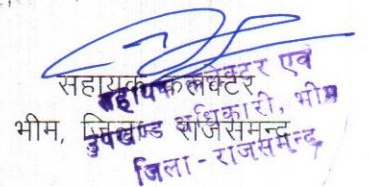 सहायक कलेक्टर
भीम, जिला राजसमन्द
सहायक कलेक्टर एवं
उपखण्ड अधिकारी, भीम
जिला - राजसमन्द